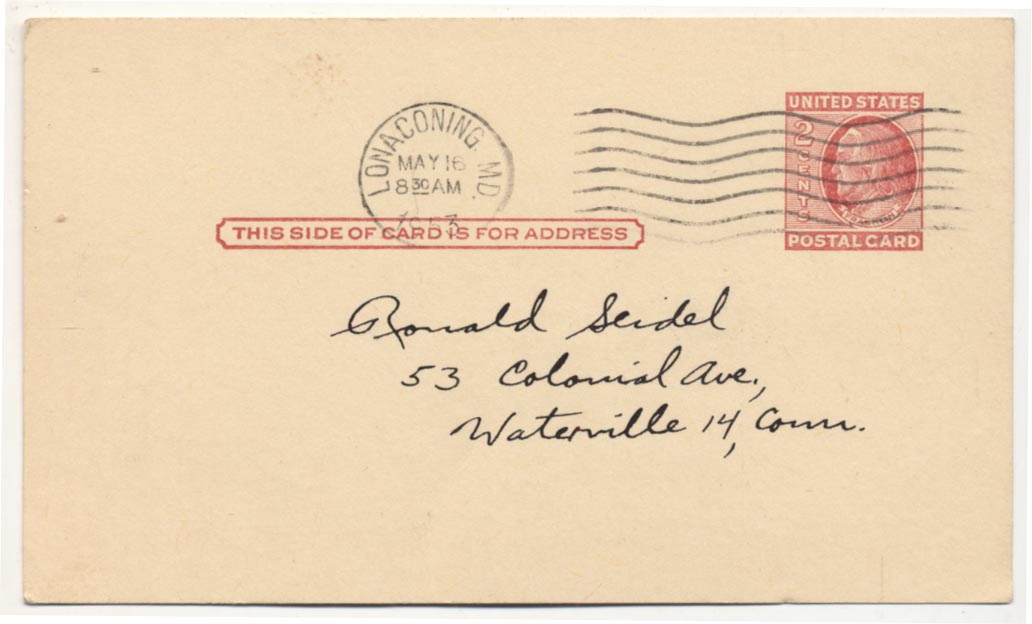 LONACONING, MD.
MAY 16
8 30 AM
1953
UNITED STATES
2 CENTS
POSTAL CARD
THIS SIDE OF CARD IS FOR ADDRESS
Ronald Seidel
53 Colonial Ave.,
Waterville 14, Conn.